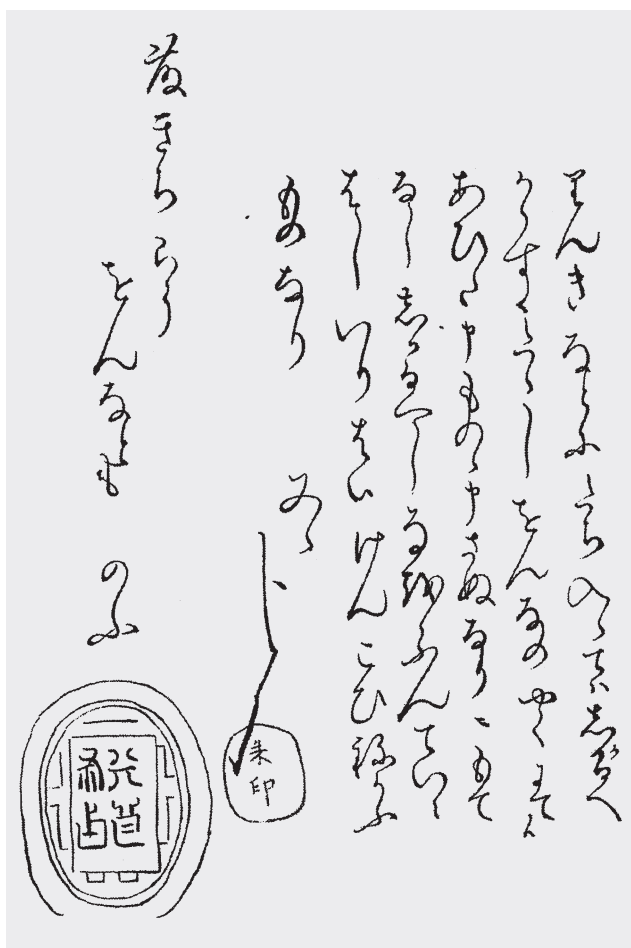 りんきなとにたち入候てはしかるへ
からす候たゝしをんなのやくにて候
あひた申ものゝ申さぬなりにもて
なししかるへく候なをふんていに
はしはにはいけんこひねかふ
ものなり
又々
朱印
藤きちらう
をんなとも
のふ